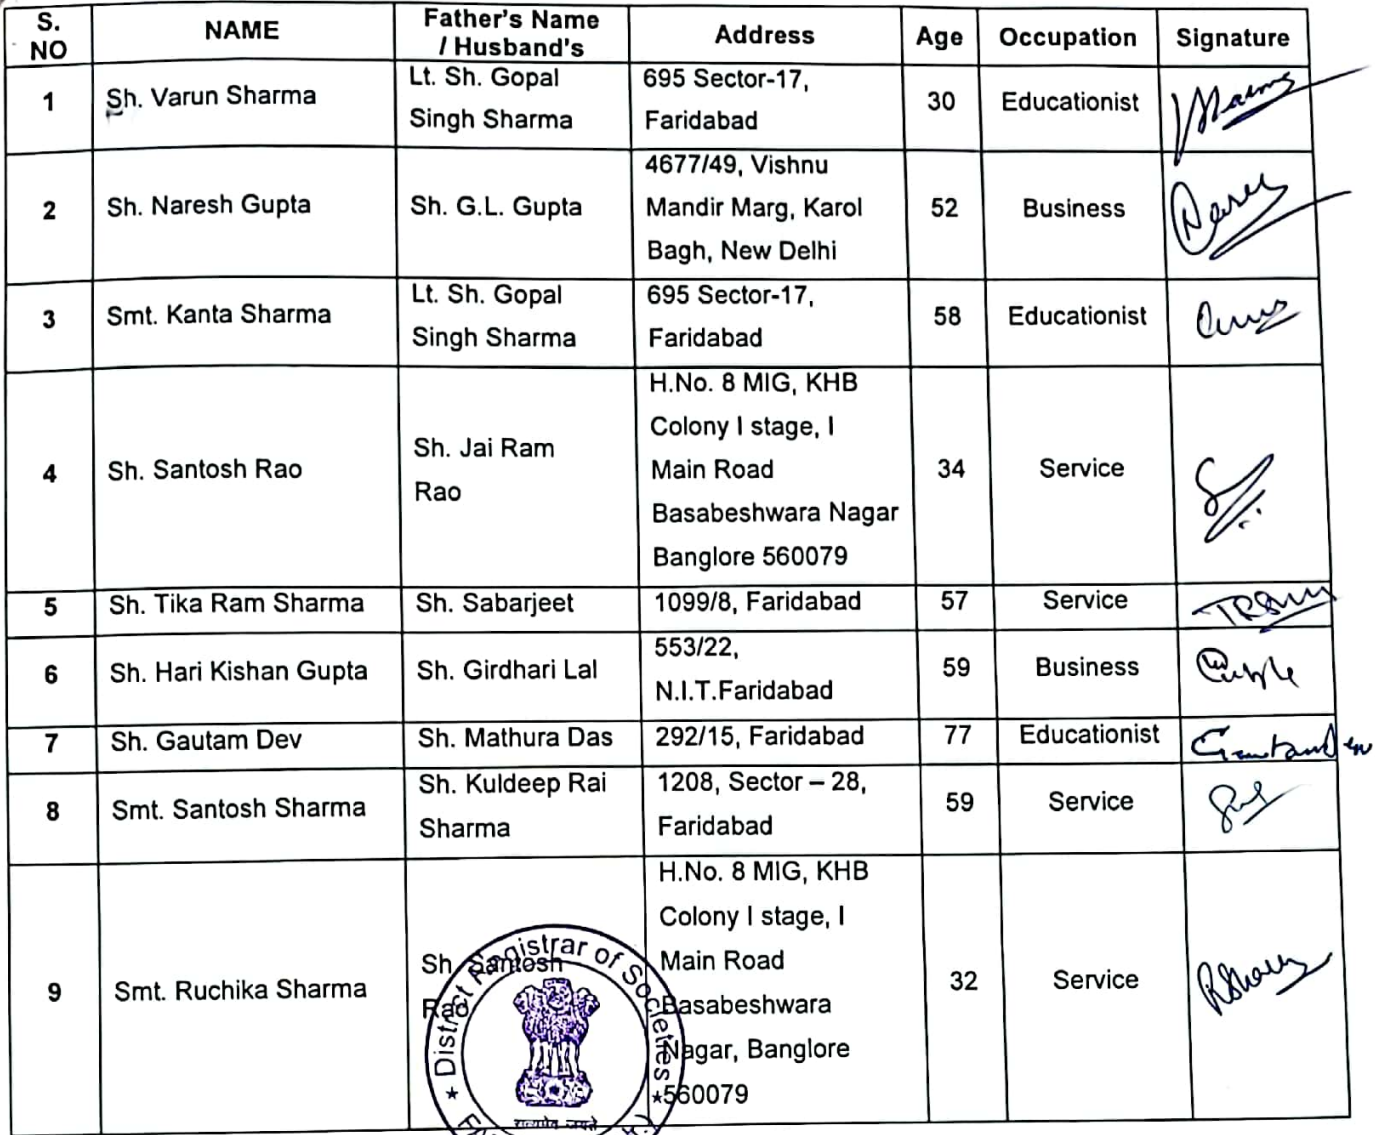 S. NO | NAME | Father's Name / Husband's | Address | Age | Occupation | Signature
1 | Sh. Varun Sharma | Lt. Sh. Gopal Singh Sharma | 695 Sector-17, Faridabad | 30 | Educationist
2 | Sh. Naresh Gupta | Sh. G.L. Gupta | 4677/49, Vishnu Mandir Marg, Karol Bagh, New Delhi | 52 | Business
3 | Smt. Kanta Sharma | Lt. Sh. Gopal Singh Sharma | 695 Sector-17, Faridabad | 58 | Educationist
4 | Sh. Santosh Rao | Sh. Jai Ram Rao | H.No. 8 MIG, KHB Colony I stage, I Main Road Basabeshwara Nagar Banglore 560079 | 34 | Service
5 | Sh. Tika Ram Sharma | Sh. Sabarjeet | 1099/8, Faridabad | 57 | Service
6 | Sh. Hari Kishan Gupta | Sh. Girdhari Lal | 553/22, N.I.T.Faridabad | 59 | Business
7 | Sh. Gautam Dev | Sh. Mathura Das | 292/15, Faridabad | 77 | Educationist
8 | Smt. Santosh Sharma | Sh. Kuldeep Rai Sharma | 1208, Sector – 28, Faridabad | 59 | Service
9 | Smt. Ruchika Sharma | Sh. Santosh Rao | H.No. 8 MIG, KHB Colony I stage, I Main Road Basabeshwara Nagar, Banglore 560079 | 32 | Service
District Registrar of Societies
सत्यमेव जयते